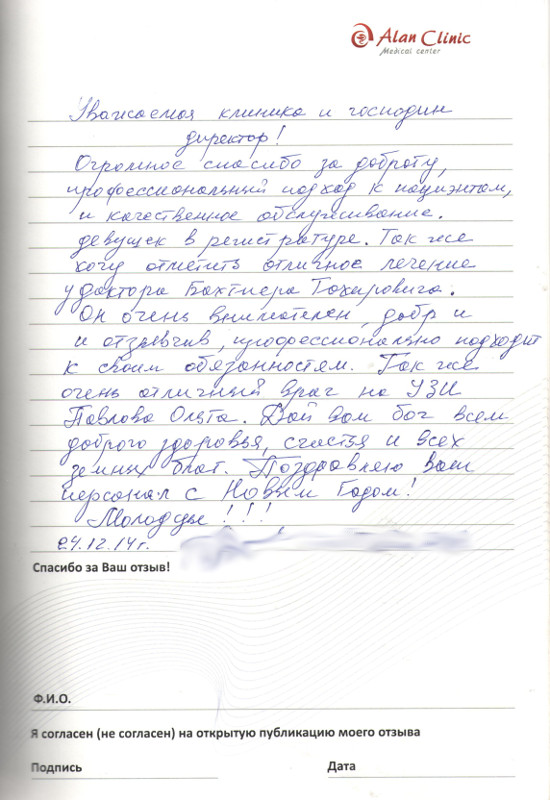 Alan Clinic
Medical center
Уважаемая клиника и господин
директор!
Огромное спасибо за доброту,
профессиональный подход к пациэнтам,
и качественное обслуживание.
девушек в регистратуре. Так же
хочу отметить отличное лечение
у доктора Бахтиера Тохировича.
Он очень внимателен, добр и
и отзывчив, профессионально подходит
к своим обязанностям. Так же
очень отличный врач на УЗИ
Павлова Ольга. Дай вам бог всем
доброго здоровья, счастья и всех
земных благ. Поздравляю Ваш
персонал с Новым Годом!
Молодцы!!!
24.12.14г.
Спасибо за Ваш отзыв!
Ф.И.О.
Я согласен (не согласен) на открытую публикацию моего отзыва
Подпись
Дата